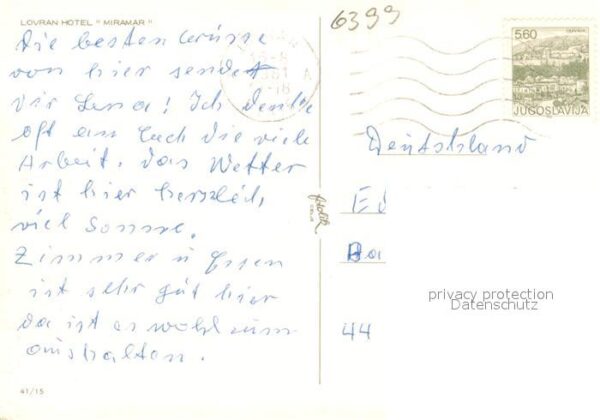 LOVRAN HOTEL " MIRAMAR "
6399
Die besten Grüsse
von hier sendet
dir Lena! Ich denke
oft an Euch die viele
Arbeit. das Wetter
ist hier herzlich,
viel Sonne.
Zimmer u Essen
ist sehr gut hier
da ist es wohl zum
aushalten.
41/15
5,60
JUGOSLAVIJA
Deutschland
Ed
Ba
44
privacy protection
Datenschutz